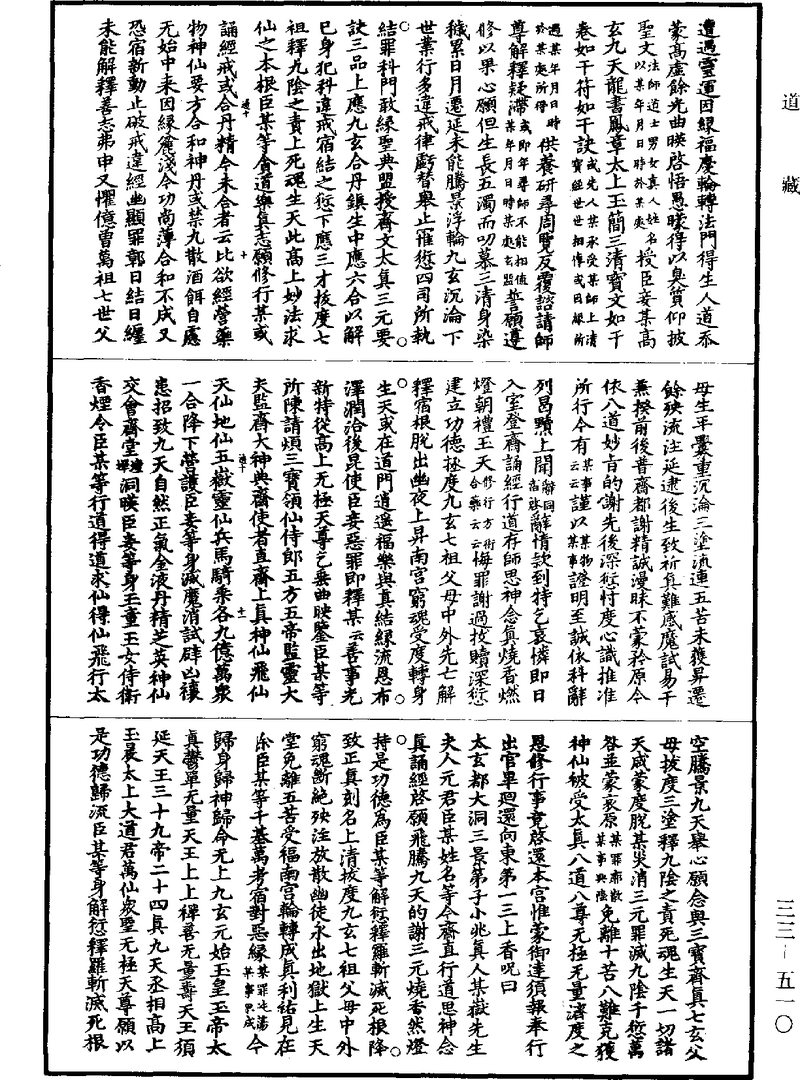 道藏
三三—五一〇
遭遇靈運因緣福慶輪轉法門得生人道忝
蒙高虛餘光曲暎啓悟愚矇得以臭質仰披
聖文法師道士男女真人姓名以某年月日時於某處授臣妾某高
玄九天龍書鳳章太上玉簡三清寶文如干
卷如干符如干訣或先人某承受某師上清寶經世世相傳或因緣所
遇某年月日時於某處所得供養研尋周覽反覆諮請師
尊解釋疑滯或即年尋師不能相值某年月日時某處玄盟誓願遵
修以果心願但生長五濁而叨慕三清身染
穢累日月遷延未能騰景浮輪九玄沉淪下
世業行多違戒律虧替舉止罹愆四司所執
結罪科門敢緣聖典盟授齋文太真三元要
訣三品上應九玄合丹鎮生中應六合以解
巳身犯科違戒宿結之愆下應三才拔度七
祖釋九陰之責上死魂生天此高上妙法求
仙之本根臣某等貪道樂真志願修行某或
誦經戒或合丹精今未合者云比欲經營藥
物神仙要方合和神丹或禁九散酒餌自惠
无始中来因緣麄淺今功尚薄合和不成又
恐宿新動止破戒違經幽顯罪鄣日結日纏
未能解釋善志弗申又懼億曾萬祖七世父
母生平釁重沉淪三塗流連五苦未獲昇遷
餘殃流注延逮後生致祈真難感魔試易干
兼揆前後普齋都謝精誠漫昧不蒙矜原今
依八道妙旨的當謝先後深愆忖度心識推准
所行今有某事云云謹以某物某事證明至誠依科辭
列曷顒上聞辭同宿啓辭情款到特乞哀憐即日
入室登齋誦經行道存師思神念真燒香燃
燈朝禮玉天修行方術合藥云云悔罪謝過拔贖深愆
建立功德拯度九玄七祖父母中外先亡解
釋宿根脫出幽夜上昇南宮窮魂受度轉身
生天或在道門逍遥福樂與真結緣流恩布
澤潤洽後昆使臣妾惡罪即釋某云善事光
新特從高上无極天尊乞垂曲映鑒臣某等
所陳請煩三寶領仙侍郎五方五帝監靈大
夫監齋大神典齋使者直齋上真神仙飛仙
天仙地仙五嶽靈仙兵馬騎乘各九億萬衆
一合降下營護臣妾等身滅魔消試辟凶禳
患招致九天自然正氣金液丹精芝英神仙
交會齋堂壇墠洞暎臣妾等身玉童玉女侍衛
香煙令臣某等行道得道求仙得仙飛行太
空騰景九天舉心願念與三寶齋真七玄父
母拔度三塗釋九陰之責死魂生天一切諸
天咸蒙度脫某災消三元罪滅九陰千愆萬
咎並蒙哀原某罪弗散某事興除免離十苦八難克獲
神仙被受太真八道八尊无極无量濟度之
恩修行事竟啓還本宮惟蒙御達須報奉行
出官畢迴還向東第一三上香呪曰
太玄都大洞三景弟子小兆真人某嶽先生
夫人元君臣某姓名等今齋直行道思神念
真誦經啓願飛騰九天的謝三元燒香然燈
持是功德為臣某等解愆釋羅斬滅死根降
致正真刻名上清拔度九玄七祖父母中外
窮魂斷絶殃注放散幽徒永出地獄上生天
堂免離五苦受福南宮輪轉成真利祐見在
除臣某等千基萬考宿對惡緣某罪屯蕩某事畢成今
歸身歸神歸命无上九玄元始玉皇玉帝太
真鬱單无量天王上上禪善无量壽天王須
延天王三十九帝二十四真九天丞相高上
玉晨太上大道君萬仙衆聖无極天尊願以
是功德歸流臣某等身解愆釋羅斬滅死根